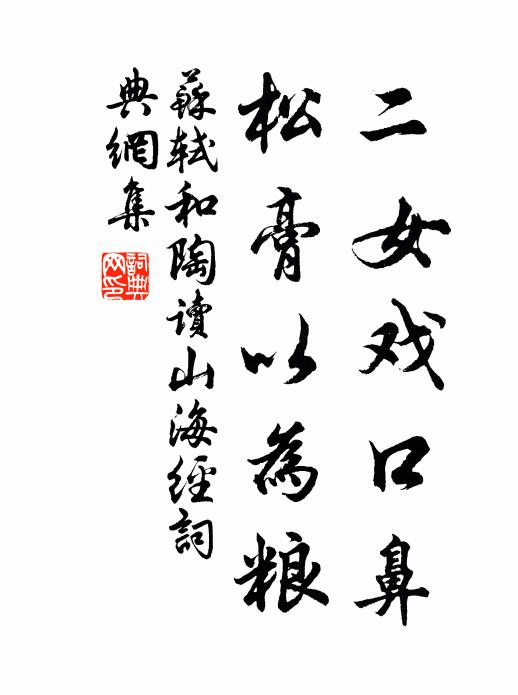 二女戏口鼻
松膏以為粮
蘇軾和陶讀山海經詞
典網集
詞典网印